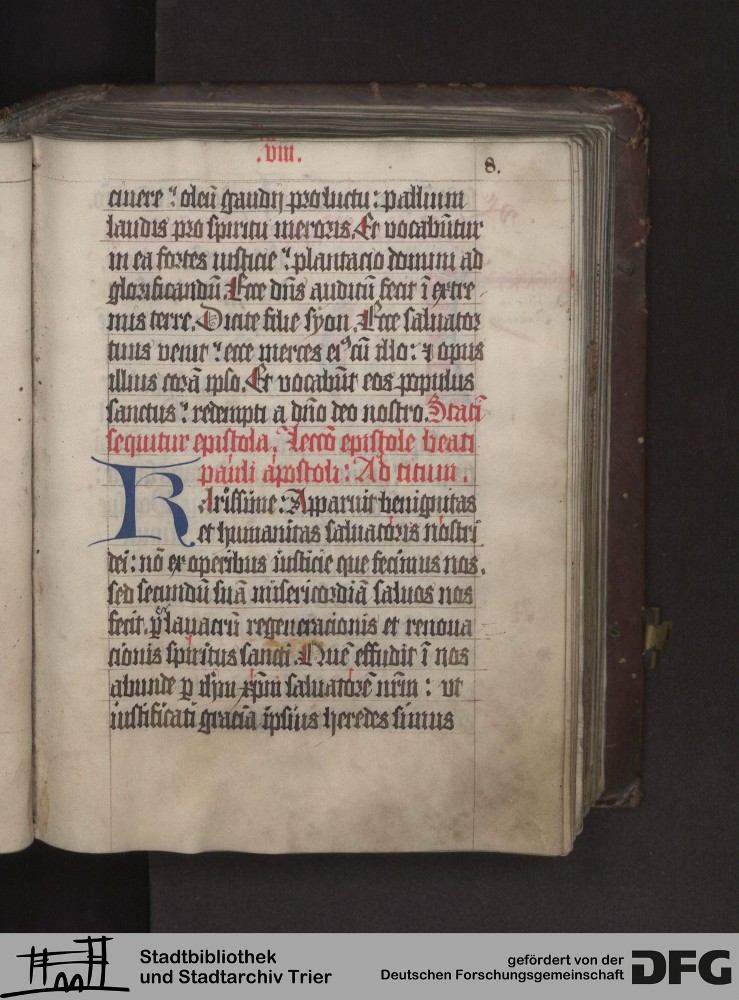 .viii.
8.
cinere ⁊ oleū gaudij pro luctu : pallium
laudis pro spiritu meroris. Et vocabūtur
in ea fortes iusticie ⁊ plantacio domini ad
glorificandū. Ecce dn̄s auditū fecit ī extre
mis terre. Dicite filie syon. Ecce saluator
tuus venit ⁊ ecce merces eiꝰ cū illo : ⁊ opus
illius corā ipso. Et vocabūt eos populus
sanctus ⁊ redempti a dn̄o deo nostro. Statī
sequitur epistola. Leccō epistole beati
pauli apostoli : Ad titum .
KArissime : Apparuit benignitas
et humanitas saluatoris nostri
dei : nō ex operibus iusticie que fecimus nos.
sed secundū suā misericordiā saluos nos
fecit. ꝑ lauacrū regeneracionis et renoua
cionis spiritus sancti. Quē effudit ī nos
abunde ꝑ ihm xp̄m saluatorē nr̄m : vt
iustificati gracia ipsius heredes simus
Stadtbibliothek
und Stadtarchiv Trier
gefördert von der
Deutschen Forschungsgemeinschaft
DFG